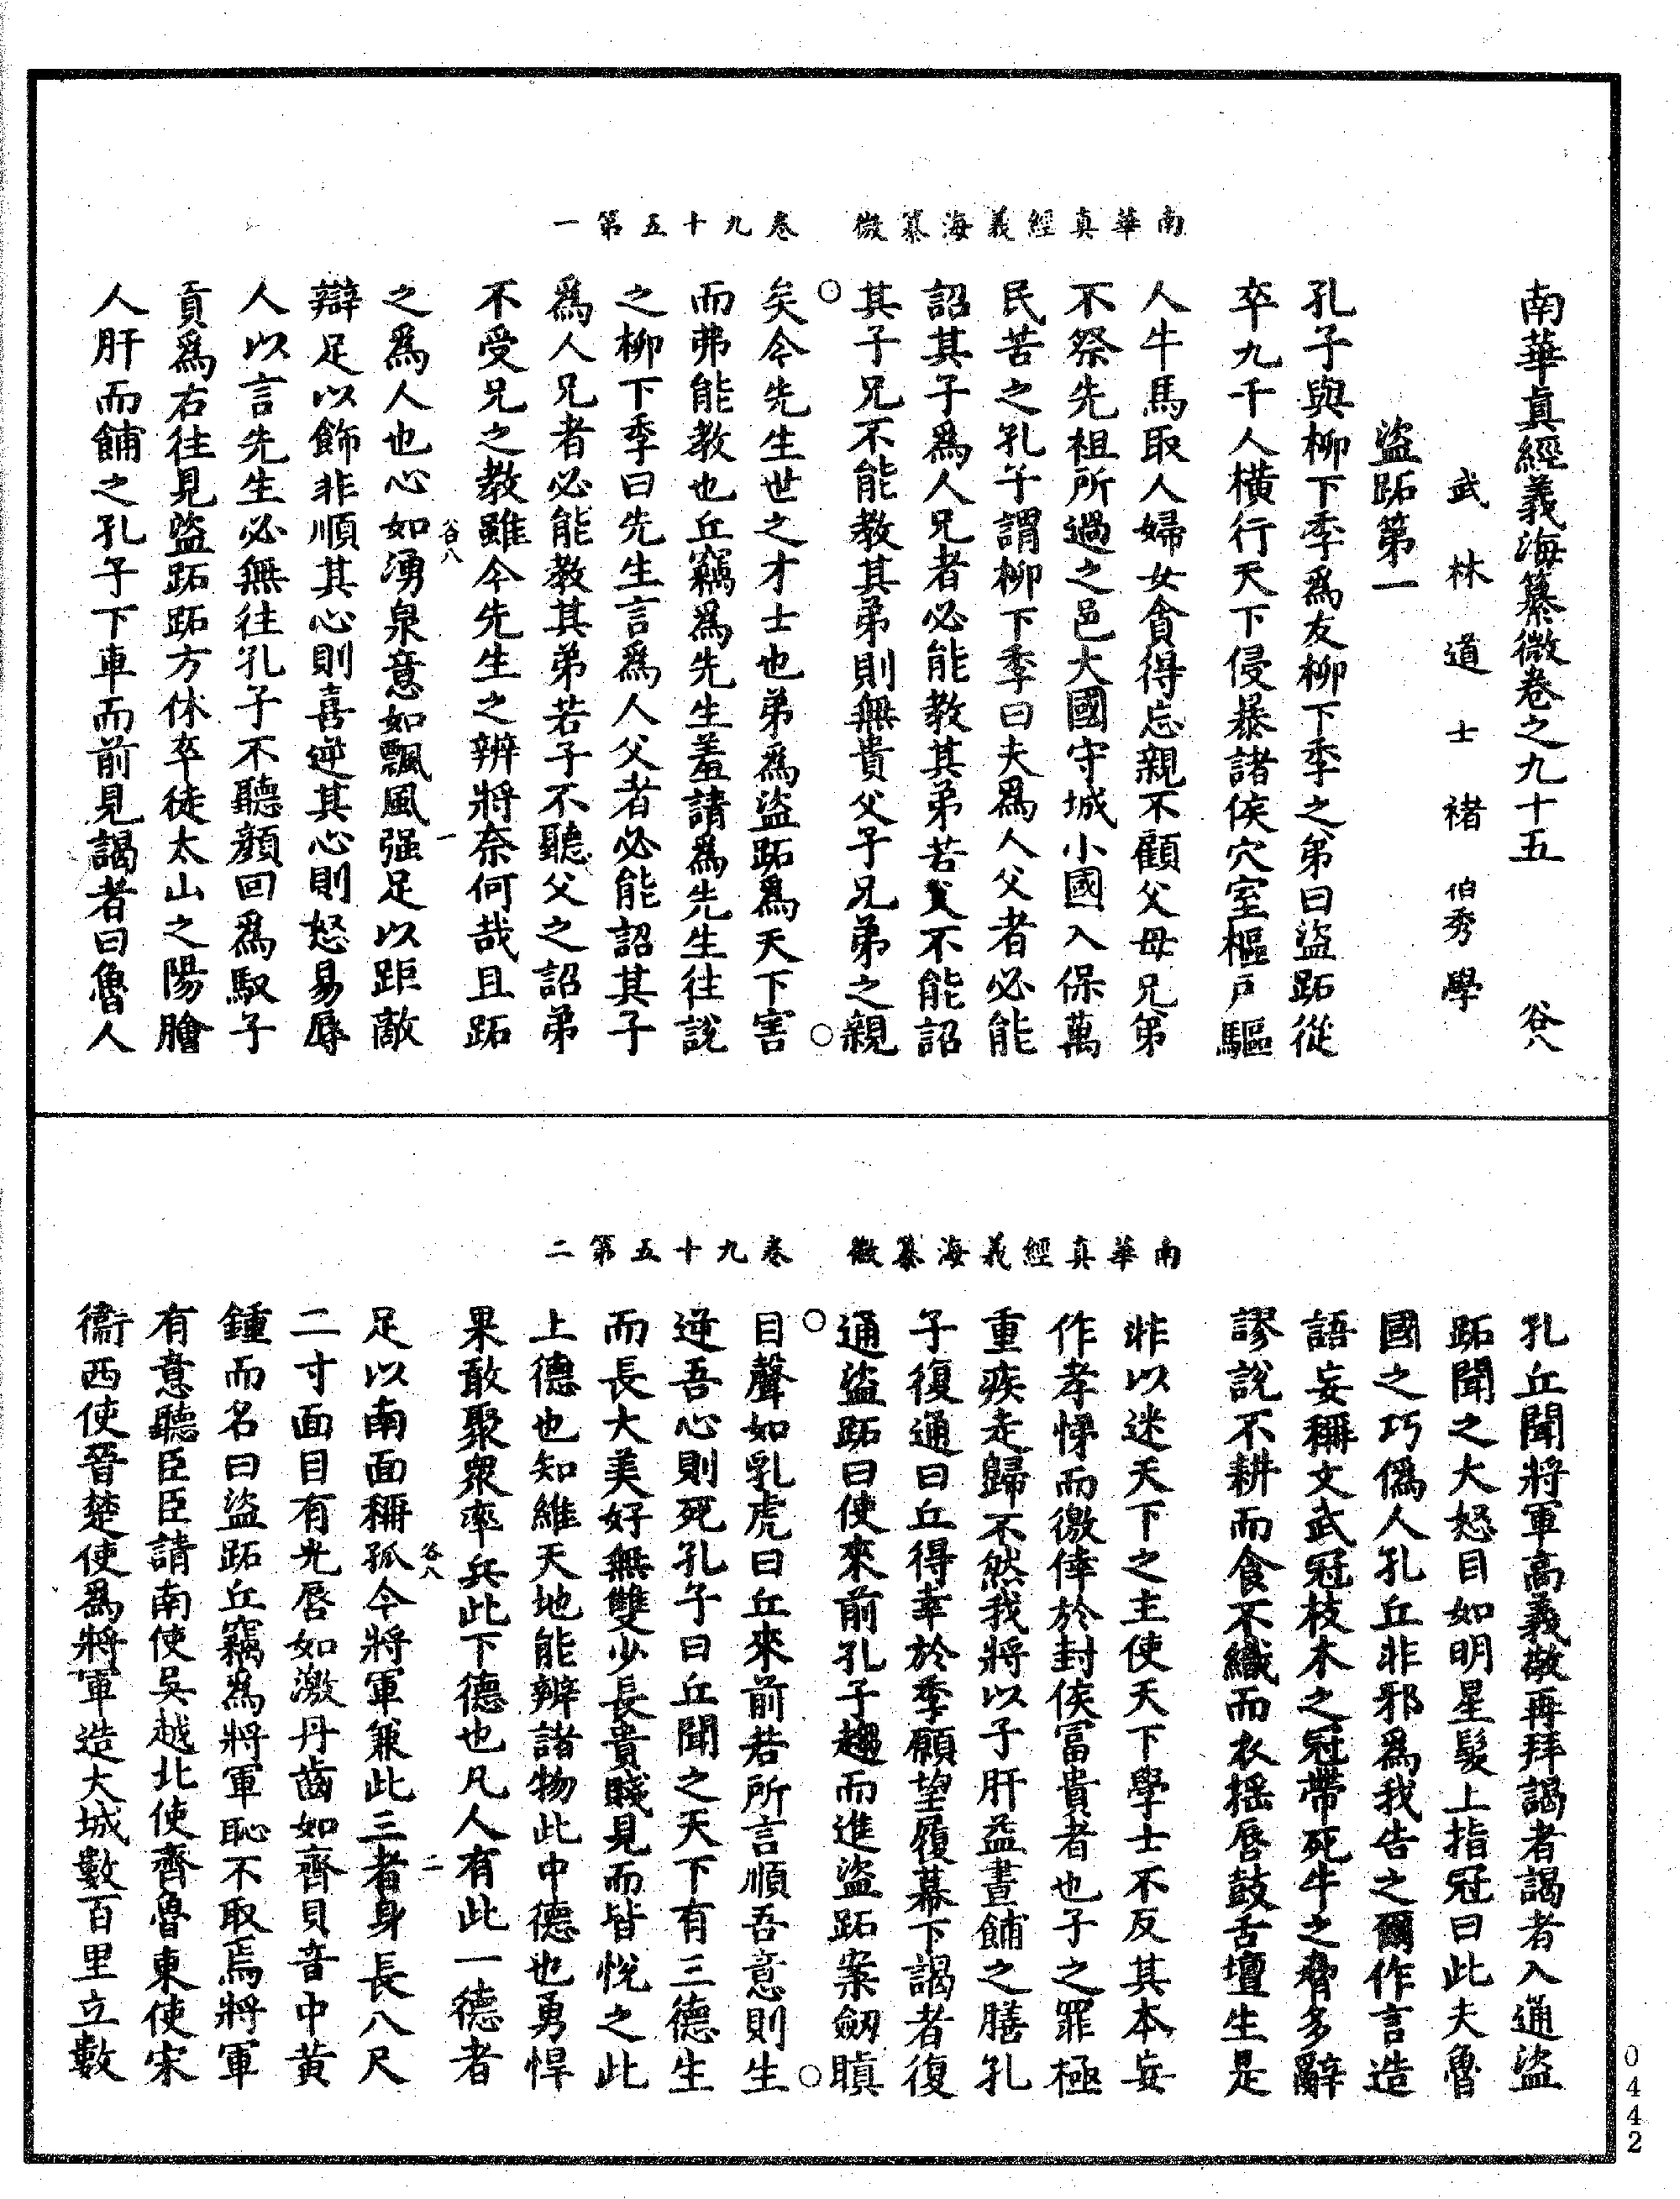 南華真經義海纂微　卷九十五第一
南華真經義海纂微卷之九十五　谷八
武林道士褚伯秀學
盜跖第一
孔子與柳下季爲友柳下季之弟曰盜跖從
卒九千人橫行天下侵暴諸侯穴室樞戶驅
人牛馬取人婦女貪得忘親不顧父母兄弟
不祭先祖所過之邑大國守城小國入保萬
民苦之孔子謂柳下季曰夫爲人父者必能
詔其子爲人兄者必能教其弟若父不能詔
其子兄不能教其弟則無貴父子兄弟之親
矣今先生世之才士也弟爲盜跖爲天下害
而弗能教也丘竊爲先生羞請爲先生往說
之柳下季曰先生言爲人父者必能詔其子
爲人兄者必能教其弟若子不聽父之詔弟
不受兄之教雖今先生之辨將奈何哉且跖
谷八　一
之爲人也心如湧泉意如飄風强足以距敵
辯足以飾非順其心則喜逆其心則怒易辱
人以言先生必無往孔子不聽顏回爲馭子
貢爲右往見盜跖跖方休卒徒太山之陽膾
人肝而餔之孔子下車而前見謁者曰魯人
南華真經義海纂微　卷九十五第二
孔丘聞將軍高義敬再拜謁者謁者入通盜
跖聞之大怒目如明星髮上指冠曰此夫魯
國之巧僞人孔丘非邪爲我告之爾作言造
語妄稱文武冠枝木之冠帶死牛之脅多辭
謬說不耕而食不織而衣揺唇鼓舌壇生是
非以迷天下之主使天下學士不反其本妄
作孝悌而徼倖於封侯富貴者也子之罪極
重疾走歸不然我將以子肝益晝餔之膳孔
子復通曰丘得幸於季願望履幕下謁者復
通盜跖曰使來前孔子趨而進盜跖案劒瞋
目聲如乳虎曰丘來前若所言順吾意則生
逆吾心則死孔子曰丘聞之天下有三德生
而長大美好無雙少長貴賤見而皆悅之此
上德也知維天地能辨諸物此中德也勇悍
果敢聚衆率兵此下德也凡人有此一德者
谷八　二
足以南面稱孤今將軍兼此三者身長八尺
二寸面目有光唇如激丹齒如齊貝音中黃
鍾而名曰盜跖丘竊爲將軍恥不取焉將軍
有意聽臣臣請南使吳越北使齊魯東使宋
衞西使晉楚使爲將軍造大城數百里立數
0442